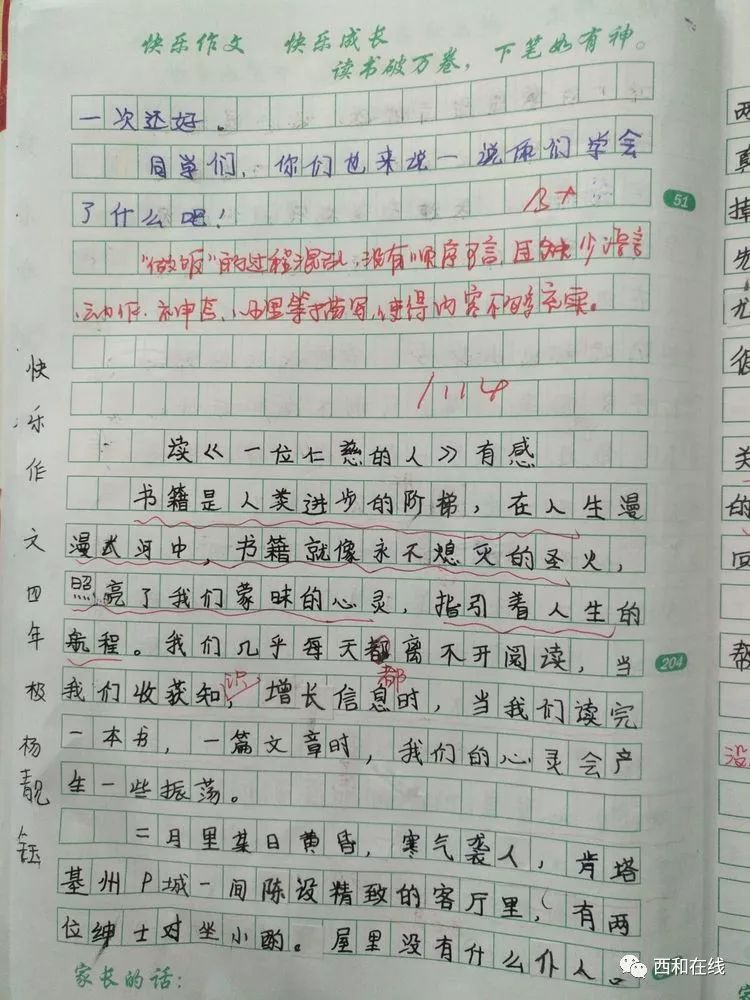 快乐作文 快乐成长
读书破万卷，下笔如有神。
一次还好。
同学们，你们也来说一说你们学会
了什么吧！
B+
51
"做饭"的过程混乱，没有顺序可言，且缺少语言
、动作、神态、心理等描写，使得内容不够充实。
11.14
读《一位仁慈的人》有感
书籍是人类进步的阶梯，在人生漫
漫长河中，书籍就像永不熄灭的圣火，
照亮了我们蒙昧的心灵，指引着人生的
航程。我们几乎每天都离不开阅读，当
204
都
我们收获知识，增长信息时，当我们读完
一本书，一篇文章时，我们的心灵会产
生一些振荡。
二月里某日黄昏，寒气袭人，肯塔
基州P城一间陈设精致的客厅里，有两
位绅士对坐小酌。屋里没有什么仆人。
家长的话：
快乐作文四年极杨靓钰
西和在线